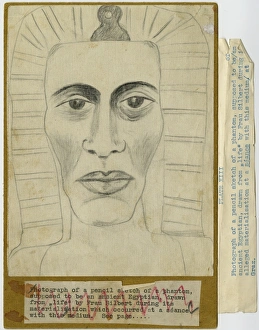 Photograph of a pencil sketch of a phantom,
supposed to be an ancient Egyptian, drawn
from „life" by Frau Silbert during its
materialisation which occurred at a séance
with this medium. See page.....
PLATE VIII
Photograph of a pencil sketch of a phantom, supposed to be/an
ancient Egyptian, drawn from „life" by Frau Silbert during
alleged materialisation at a séance with this medium, at
Graz.